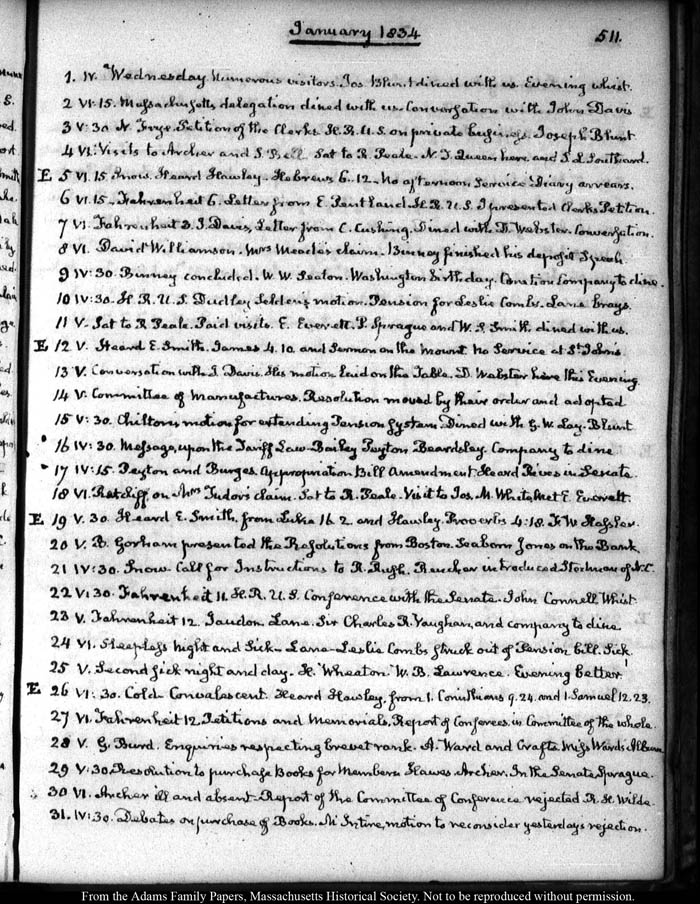 January 1834
511.
1. IV. Wednesday. Numerous visitors. Jos Blunt dined with us. Evening whist.
2 VI:15. Massachusetts delegation dined with us. Conversation with John Davis
3 V:30 N. Frye. Petition of the Clerks H.R.U.S. on private business. Joseph Blunt
4 VI: Visits to Archer and S. Bell. Sat to R. Peale. N. J. Queen here and S. L. Southard.
E 5 VI.15. Snow. Heard Hawley. Hebrews 6..12. No afternoon Service Diary arrears.
6 VI.15. Fahrenheit 6. Letter from E. Pentland. H.R.U.S. I presented Clerks Petition.
7 VI. Fahrenheit 3. J. Davis, Letter from C. Cushing. Dined with D. Webster. Conversation.
8 VI. David Williamson. Mrs Meade's claim. Binney finished his deposit Speech
9 IV:30. Binney concluded. W. W. Seaton. Washington birthday. Company to dine.
10 IV:30. H.R.U.S. Dudley Selden's motion. Pension for Leslie Combs. Lane brays.
11 V. Sat to R Peale. Paid visits. E. Everett. P. Sprague and W. S. Smith dined with us.
E 12 V. Heard E. Smith. James 4.10. and Sermon on the mount No Service at St John's
13 V. Conversation with J. Davis. His motion laid on the Table. D. Webster here this Evening
14 V. Committee of Manufactures. Resolution moved by their order and adopted
15 V:30. Chilton's motion for extending Pension System. Dined with G. W. Lay. Blunt
16 IV:30. Message, upon the Tariff Law. Bailey Peyton Beardsley. Company to dine
17 IV:15. Peyton and Burges. Appropriation Bill Amendment Heard Rives in Senate.
18 VI. Ratcliff on Mrs Tudor's claim. Sat to R. Peale. Visit to Jos. M. White. Met E. Everett.
E 19 V.30. Heard E. Smith. from Luke 16.2. and Hawley. Proverbs 4:18. F. W. Hassler.
20 V. B. Gorham presented the Resolutions from Boston. Seaborn Jones on the Bank.
21 IV:30. Snow. Call for Instructions to R. Rush. Rencher introduced Stedman of N.C.
22 V:30. Fahrenheit 11. H.R.U.S. Conference with the Senate. John Connell Whist
23 V. Fahrenheit 12. Jaudon. Lane. Sir Charles R. Vaughan, and company to dine
24 VI. Sleepless night and Sick. Lane. Leslie Combs struck out of Pension bill. Sick
25 V. Second sick night and day. H. Wheaton. W. B. Lawrence. Evening better
E 26 VI:30. Cold. Convalescent. Heard Hawley, from 1. Corinthians 9.24. and 1. Samuel 12.23.
27 VI. Fahrenheit 12. Petitions and Memorials. Report of Conferees in Committee of the whole.
28 V. G. Burd. Enquiries respecting brevet rank. A. Ward and Crafts Miss Ward's Album
29 V:30. Resolution to purchase Books for Members Hawes. Archer. In the Senate Sprague.
30 VI. Archer ill and absent. Report of the Committee of Conference rejected R. H. Wilde
31. IV:30. Debates on purchase of Books. McIntire, motion to reconsider yesterdays rejection.
From the Adams Family Papers, Massachusetts Historical Society. Not to be reproduced without permission.